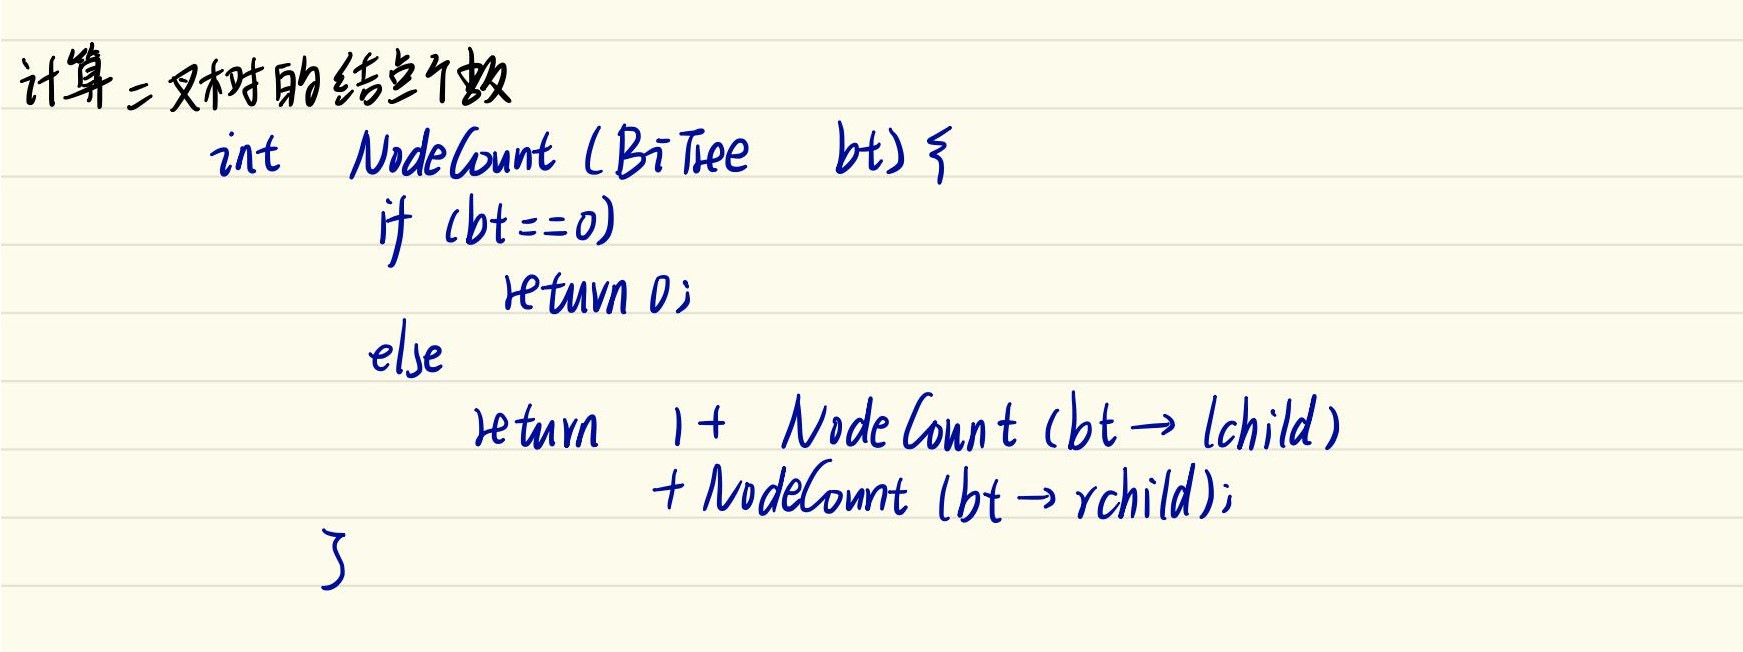 计算二叉树的结点个数
int NodeCount (BiTree bt) {
if (bt==0)
return 0;
else
return 1+ NodeCount (bt→lchild)
+ NodeCount (bt→rchild);
}